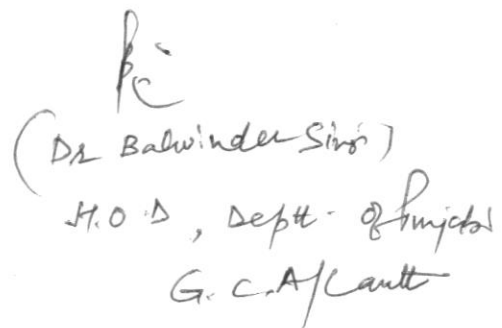 (Dr Balwinder Singh)
H.O.D, Deptt. of Punjabi
G.C.A/Cantt